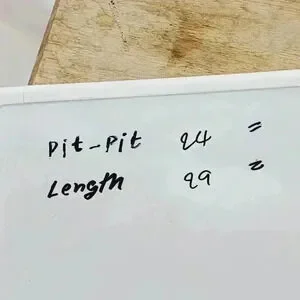 Pit-Pit 24 =
Length 29 =